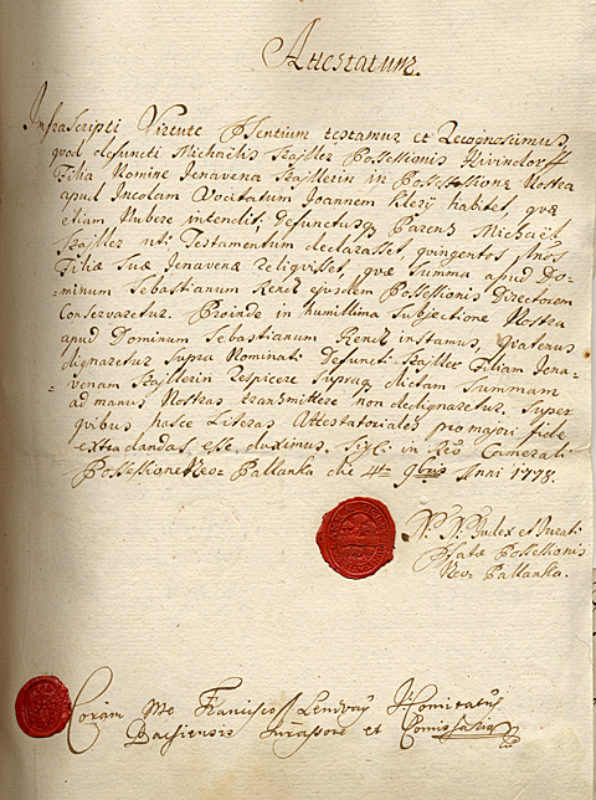 Attestatum.
Infrascripti Virtute Psentium testamur et Recognoscimus,
quod defuncti Michaëlis Hajller Possessionis Kivindorff
Filia Nomine Jenavena Hajllerin in Possessione Nostra
apud Incolam Vocitatum Joannem Klezÿ habitet, quæ
etiam Nubere intendit; Defunctusq Parens Michaël
Hajller uti Testamentum declarasset, quingentos
Filiæ Suæ Jenavenæ reliquisset, quæ Summa apud Do=
minum Sebastianum Rencz ejusdem Possessionis Directorem
Conservaretur. Proinde in humillima Subjectione Nostra
apud Dominum Sebastianum Rencz instamus, quatenus
dignaretur Supra Nominati Defuncti Hajller Filiam Jena=
=venam Hajllerin Respicere Supraq dictam Summam
ad manus Nostras transmittere non dedignaretur. Super
quibus hasce Literas Attestatoriales pro majori fide
extradandas esse duximus. Sigl. in Camerali
Possessione Neo= Pallanka die 4ta 9bris Anni 1778.
N. N. Judex et Jurati
Pfatæ Possessionis
Neo= Pallanka.
Coram Me Francisco Lendvaÿ I. Comitatus
Bacsiensis Jurassore et Comissario